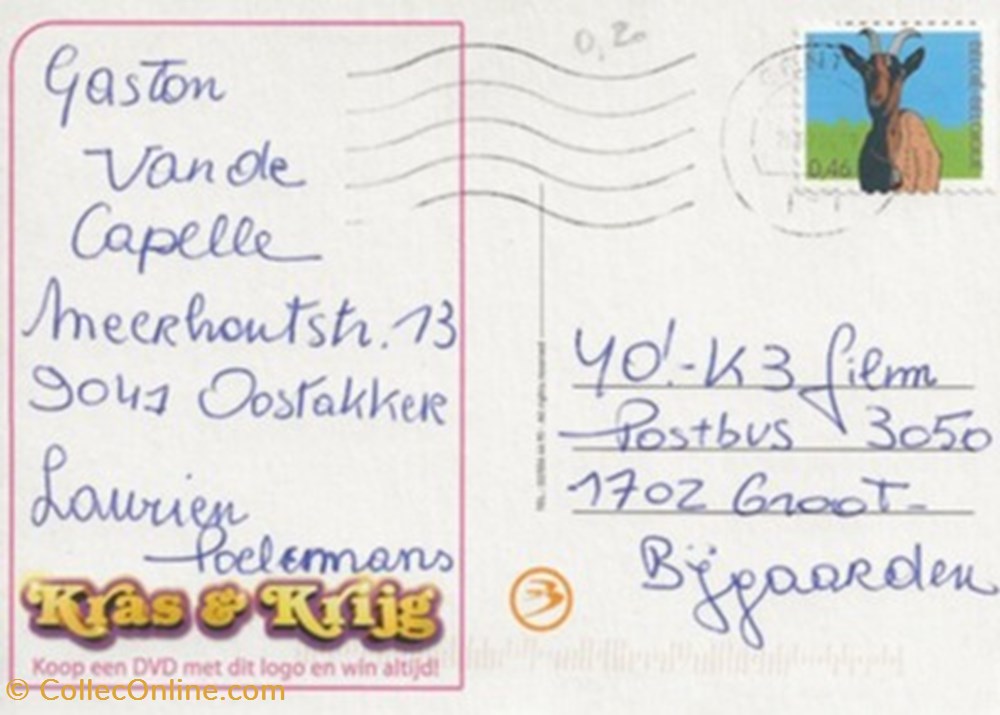 0,20
Gaston
Van de
Capelle
Meerhoutstr. 13
9041 Oostakker
Laurien
Poelemans
Kras & Krijg
Koop een DVD met dit logo en win altijd!
© CollecOnline.com
0,46
YO!-K3 film
Postbus 3050
1702 Groot-
Bijgaarden